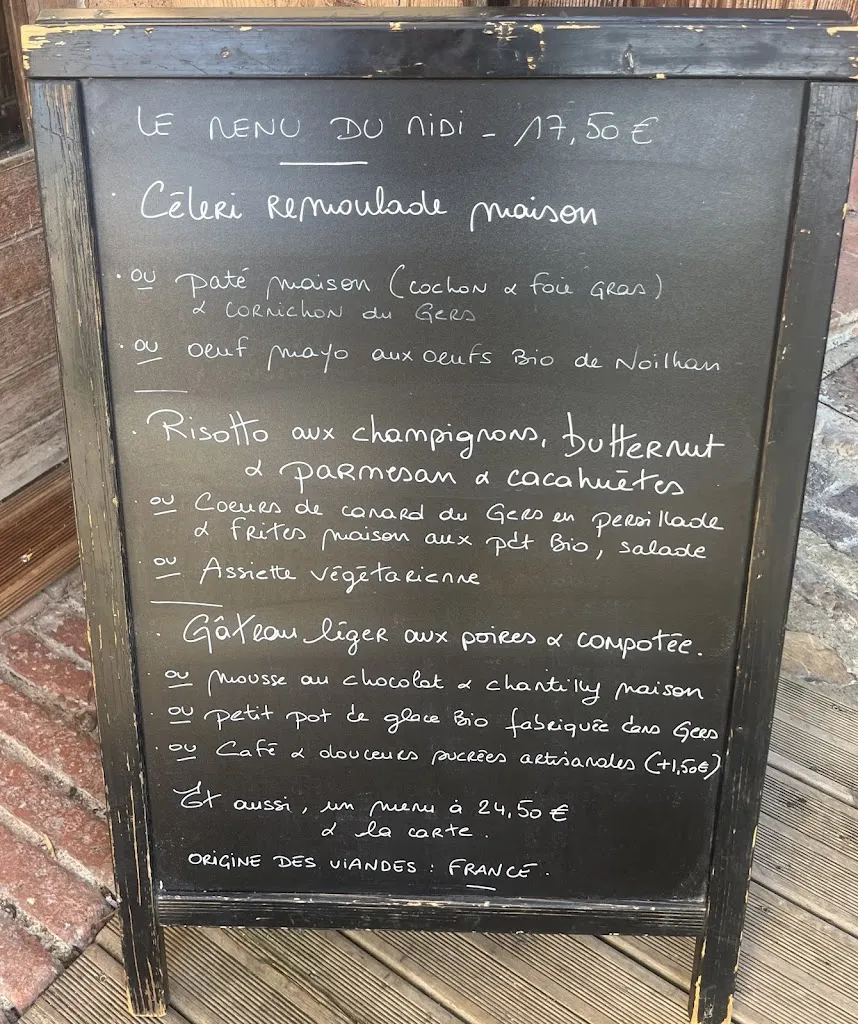 LE MENU DU MIDI - 17,50 €
· Céleri Remoulade maison
· ou paté maison (cochon & foie gras)
& cornichon du Gers
· ou oeuf mayo aux oeufs Bio de Noilhan
· Risotto aux champignons, butternut
& parmesan & cacahuètes
· ou Coeurs de canard du Gers en persillade
& frites maison aux pdt Bio, salade
· ou Assiette végétarienne
· Gâteau léger aux poires & compotée.
· ou mousse au chocolat & chantilly maison
· ou petit pot de glace Bio fabriquée dans Gers
· ou Café & douceurs sucrées artisanales (+1,50€)
Et aussi, un menu à 24,50 €
& la carte.
ORIGINE DES VIANDES : FRANCE.